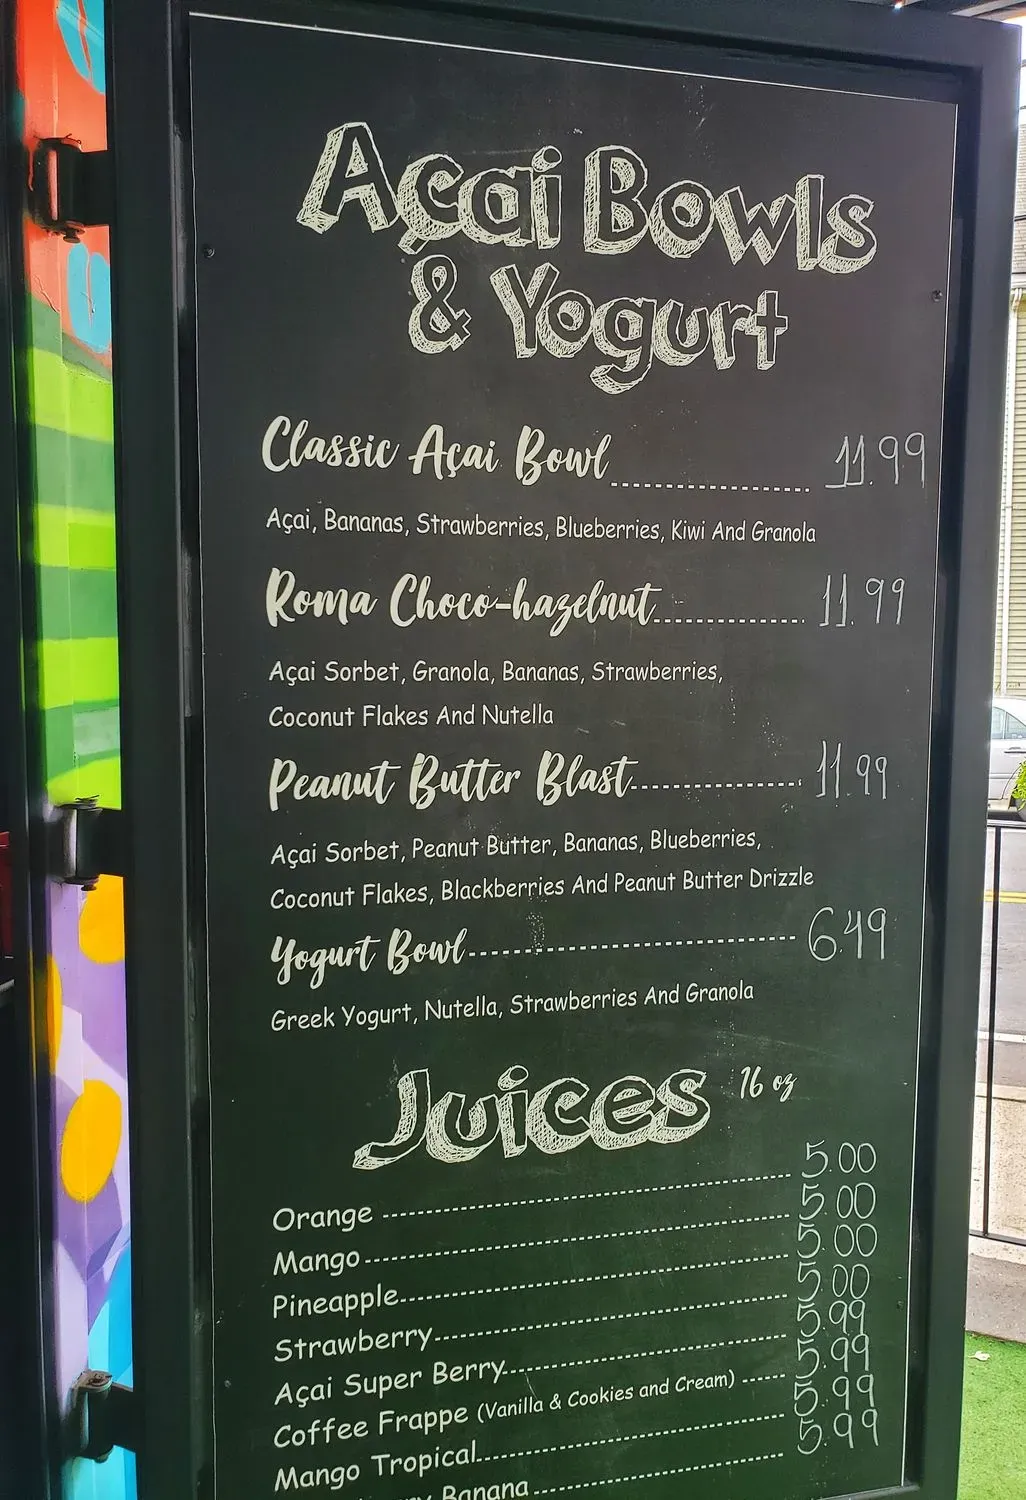 Açai Bowls
& Yogurt
Classic Açai Bowl 11.99
Açai, Bananas, Strawberries, Blueberries, Kiwi And Granola
Roma Choco-hazelnut 11.99
Açai Sorbet, Granola, Bananas, Strawberries,
Coconut Flakes And Nutella
Peanut Butter Blast 11.99
Açai Sorbet, Peanut Butter, Bananas, Blueberries,
Coconut Flakes, Blackberries And Peanut Butter Drizzle
Yogurt Bowl 6.49
Greek Yogurt, Nutella, Strawberries And Granola
Juices 16 oz
Orange 5.00
Mango 5.00
Pineapple 5.00
Strawberry 5.00
Açai Super Berry 5.99
Coffee Frappe (Vanilla & Cookies and Cream) 5.99
Mango Tropical 5.99
Banana 5.99